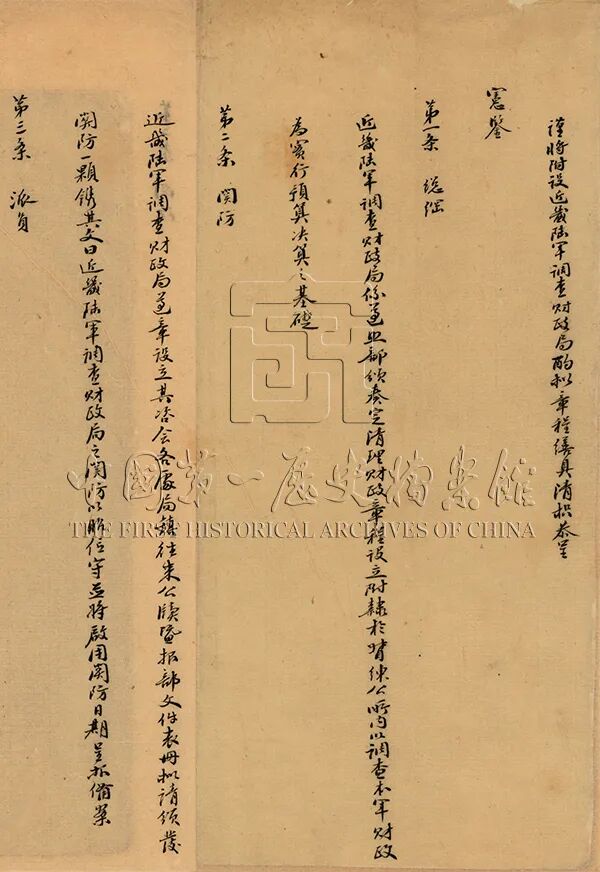 謹將附設近畿陸軍調查財政局酌拟章程繕具清摺恭呈
憲鑒
第一条 総綱
近畿陸軍調查財政局係遵照部頒奏定清理財政章程設立附隸於督練公所內以調查本軍財政
為實行預算决算之基礎
第二条 関防
近畿陸軍調查財政局遵章設立其咨会各處局鎮往来公牘曁报部文件表冊拟請頒發
関防一顆鐫其文曰近畿陸軍調查財政局之関防以昭信守並將啟用関防日期呈报備案
第三条 派員
中国第一歷史檔案館
THE FIRST HISTORICAL ARCHIVES OF CHINA